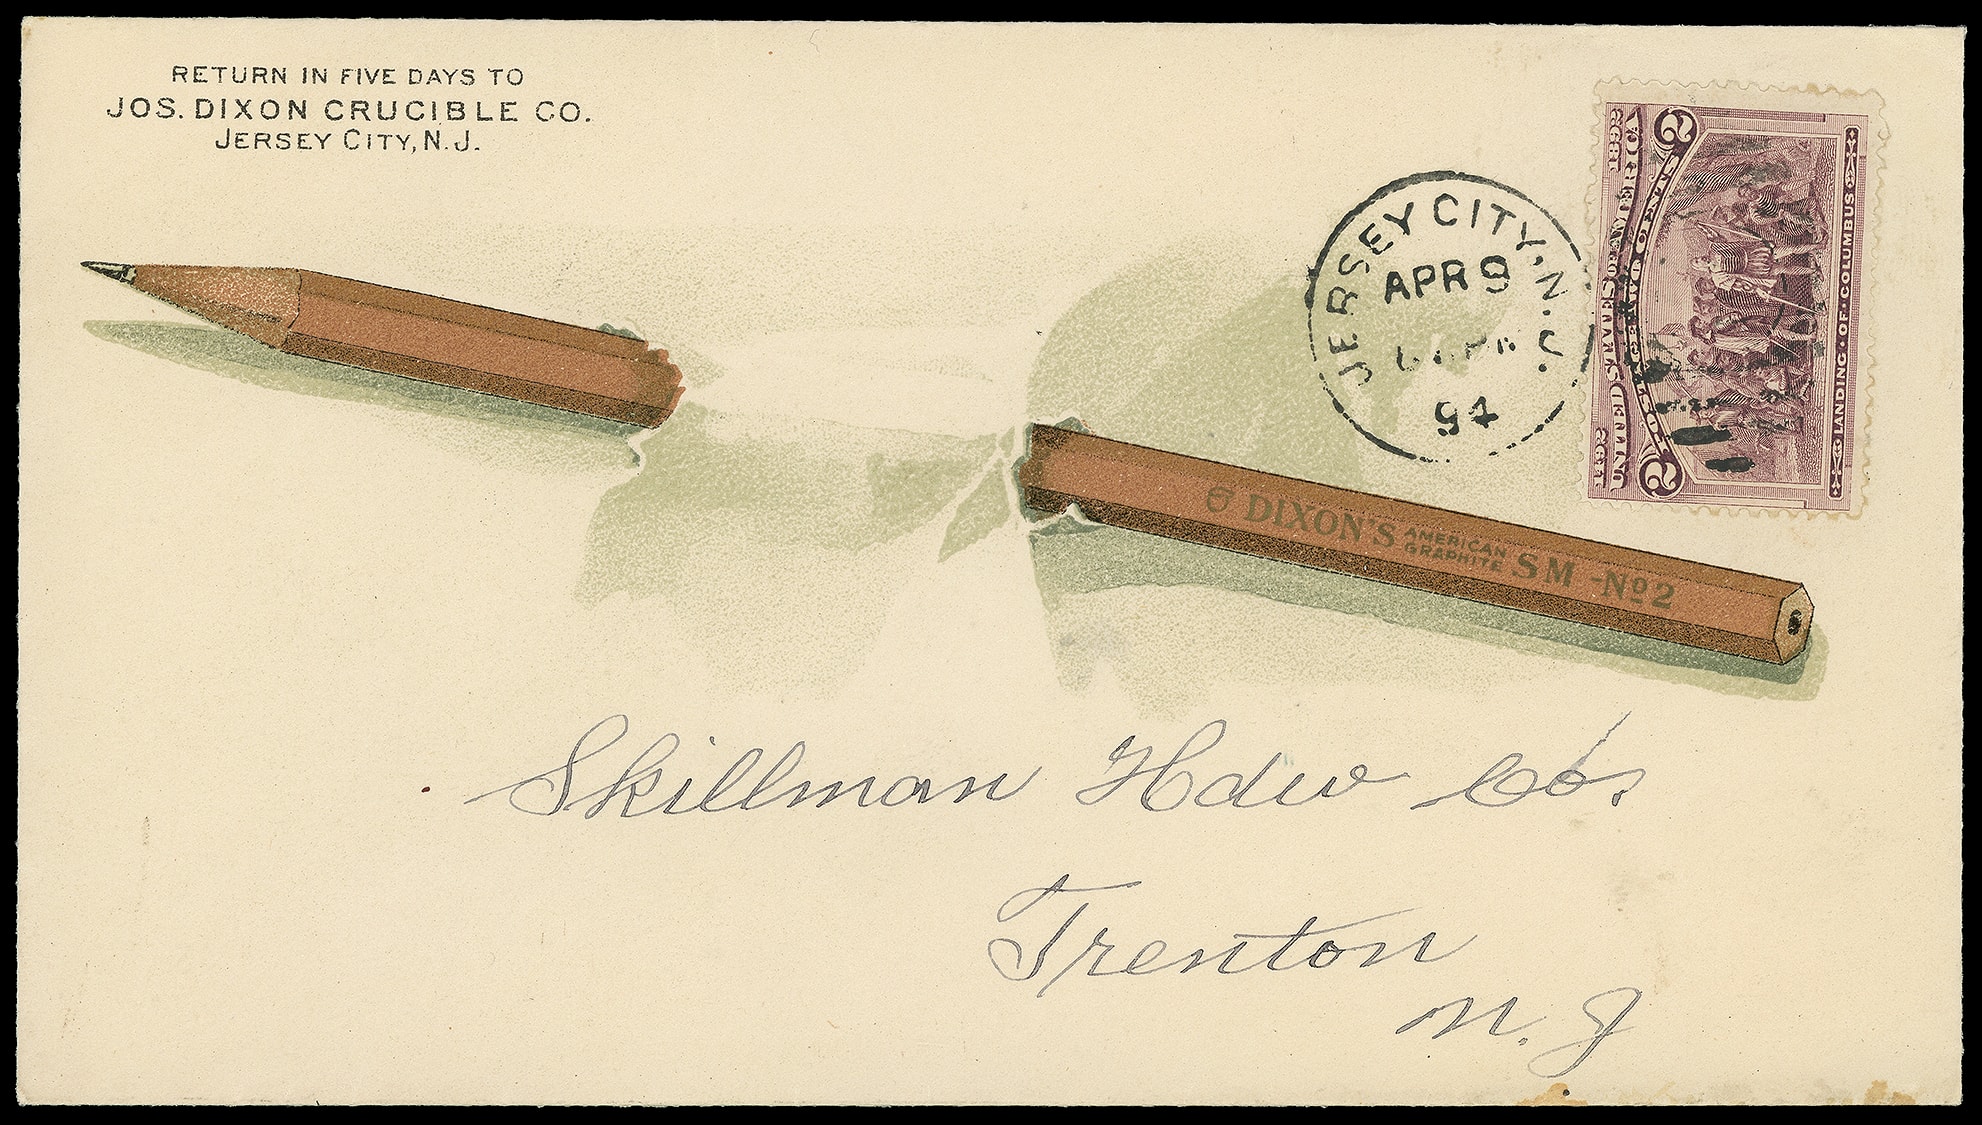 RETURN IN FIVE DAYS TO
JOS. DIXON CRUCIBLE CO.
JERSEY CITY, N.J.
JERSEY CITY, N.J.
APR 9
94
1492 UNITED STATES OF AMERICA 1892
2 2
CENTS
LANDING · OF · COLUMBUS
DIXON'S AMERICAN GRAPHITE SM -No 2
Skillman Hdw Co.
Trenton
N. J